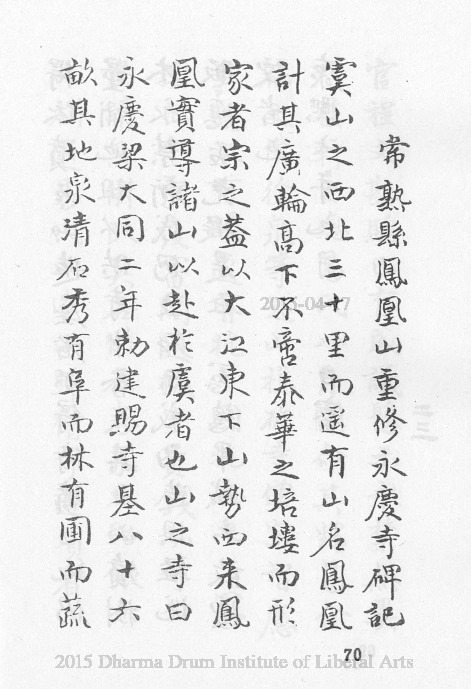 常熟縣鳳凰山重修永慶寺碑記
虞山之西北三十里而遥有山名鳳凰
計其廣輪高下不啻泰華之培塿而形
家者宗之葢以大江東下山勢西来鳳
凰實導諸山以赴於虞者也山之寺曰
永慶梁大同二年勅建賜寺基八十六
畝其地泉清石秀有阜而林有圃而蔬
70
2015 Dharma Drum Institute of Liberal Arts